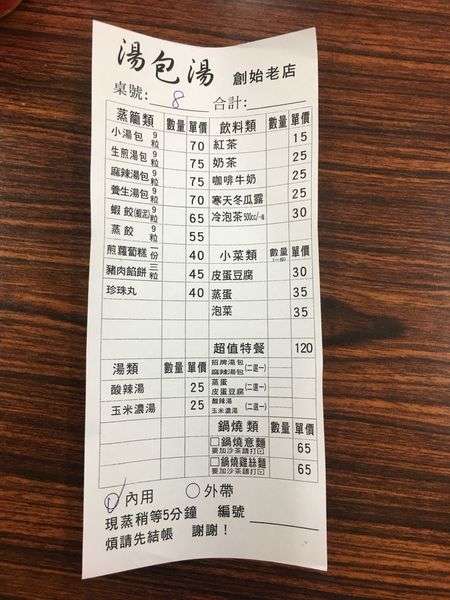 湯包湯 創始老店
桌號: 8 合計:
蒸籠類 數量 單價
小湯包 9粒 70
生煎湯包 9粒 75
麻辣湯包 9粒 75
養生湯包 9粒 70
蝦餃 9粒 65
蒸餃 9粒 55
煎蘿蔔糕 份 40
豬肉餡餅 三粒 45
珍珠丸 40
湯類 數量 單價
酸辣湯 25
玉米濃湯 25
飲料類 數量 單價
紅茶 15
奶茶 25
咖啡牛奶 25
寒天冬瓜露 25
冷泡茶 500cc/ 30
小菜類 數量 單價
皮蛋豆腐 30
蒸蛋 35
泡菜 35
超值特餐 120
招牌湯包
麻辣湯包 (二選一)
蒸蛋
皮蛋豆腐 (二選一)
酸辣湯
玉米濃湯 (二選一)
鍋燒類 數量 單價
□鍋燒意麵 65
要加沙茶請打☑
□鍋燒雞絲麵 65
要加沙茶請打☑
內用 ○外帶
現蒸稍等5分鐘 編號
煩請先結帳 謝謝!